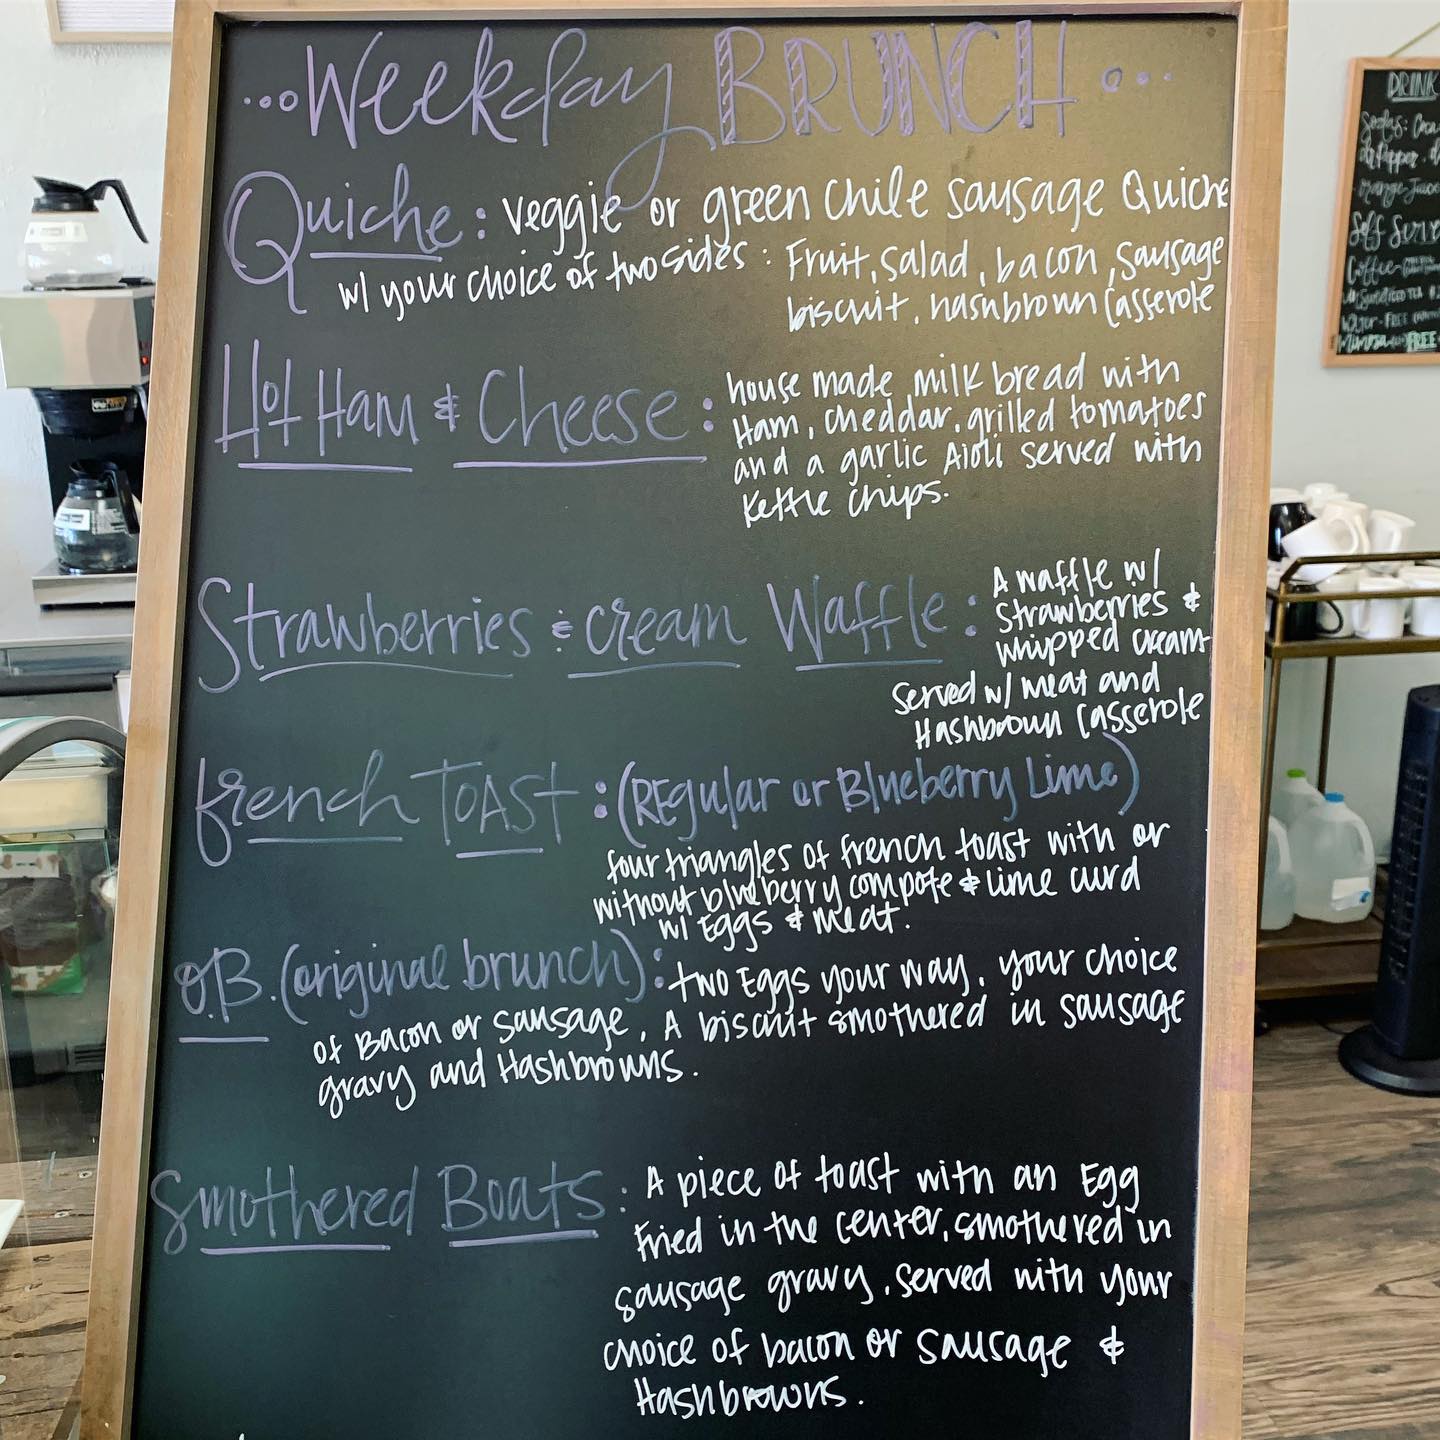 ...Weekday BRUNCH...
Quiche: veggie or green chile sausage Quiche
w/ your choice of two sides: Fruit, salad, bacon, sausage
biscuit, hashbrown casserole
Hot Ham & Cheese: house made milk bread with
Ham, cheddar, grilled tomatoes
and a garlic Aioli served with
Kettle chips.
Strawberries & cream Waffle: A waffle w/
Strawberries &
whipped cream
served w/ meat and
Hashbrown Casserole
french TOAST: (REgular or Blueberry Lime)
four triangles of french toast with or
without blueberry compote & lime curd
w/ Eggs & meat.
O.B. (original brunch): two Eggs your way, your choice
of Bacon or sausage, A biscuit smothered in sausage
gravy and Hashbrowns.
Smothered Boats: A piece of toast with an Egg
fried in the center, smothered in
sausage gravy, served with your
choice of bacon or sausage &
Hashbrowns.
DRINK
Sodas: Coca
dr Pepper, d
orange juice
Self Serve
Coffee
unsweetened TEA
Water - FREE
mimosa FREE